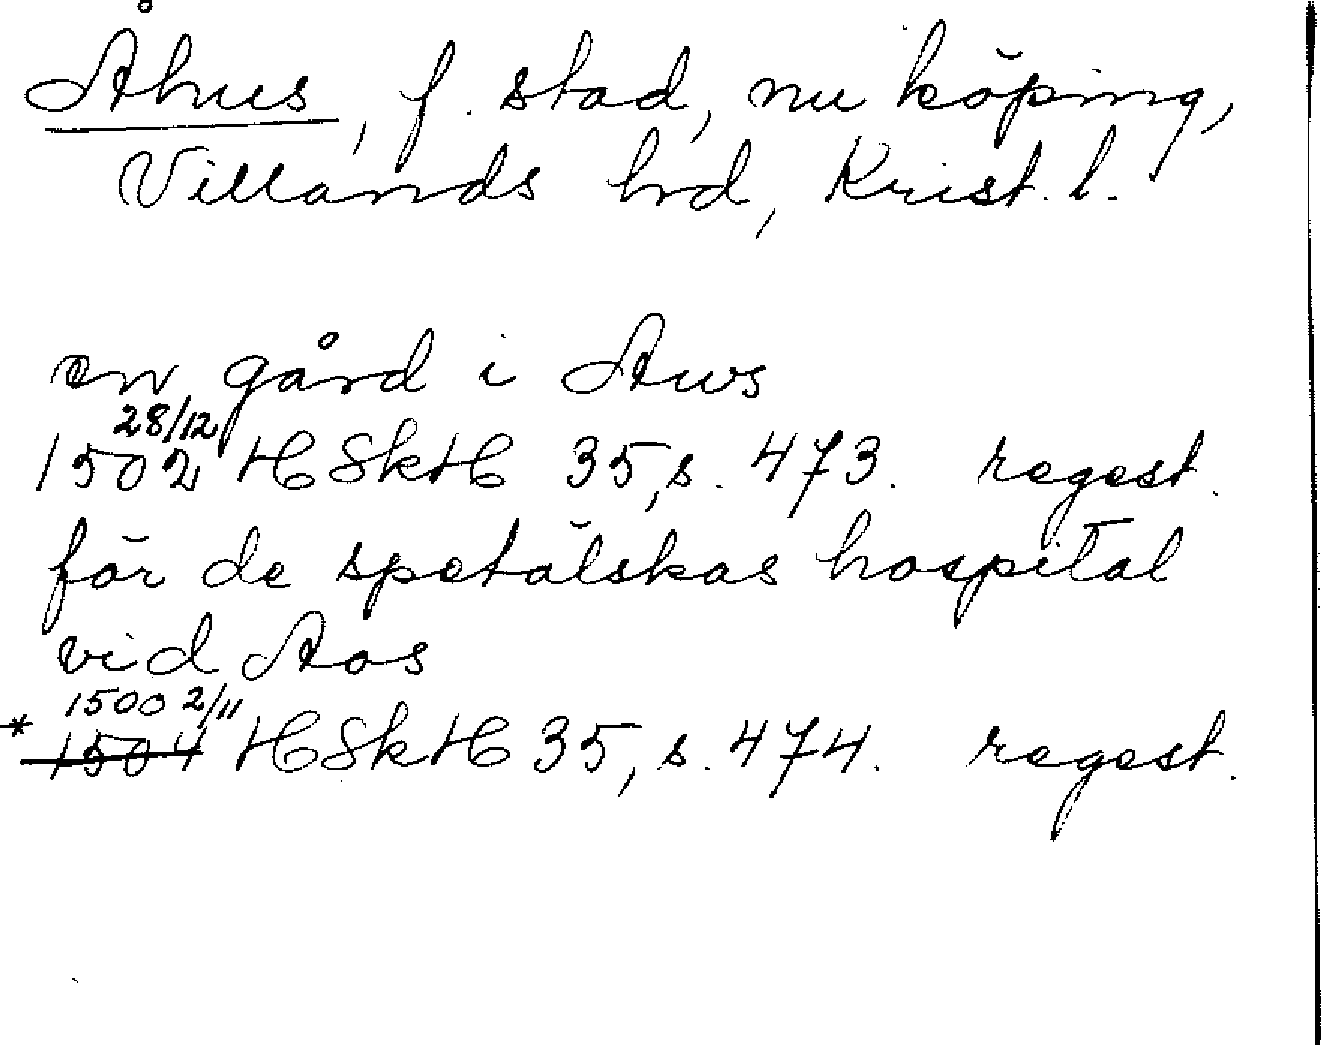 Åhus, f. stad, nu köping,
Villands hrd, Krist. l.
en gård i Aws
28/12
1502 HSkH 35, s. 473. regest.
för de spetälskas hospital
vid Aos
1500 2/11
* 1504 HSkH 35, s. 474. regest.